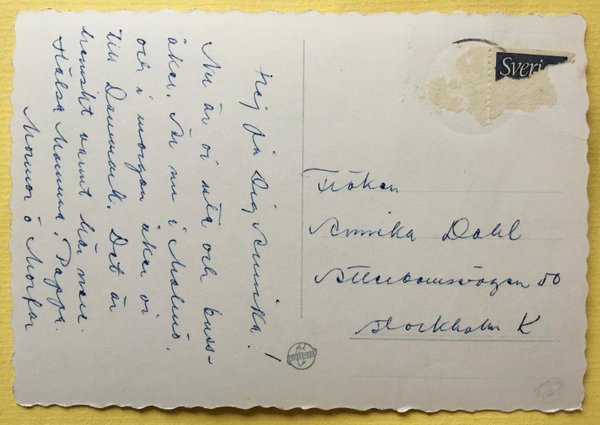 Hej på Dig Annika!
Nu är vi ute och buss-
åker. Är nu i Malmö,
och i morgon åker vi
till Danmark. Det är
hemskt varmt här nere.
Hälsa Mamma, Pappa.
Mormor o Morfar
Sveri
Fröken
Annika Dahl
50
Stockholm K